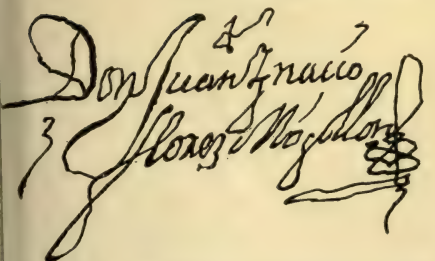 Don Juan Ynacio
florez Mogollon